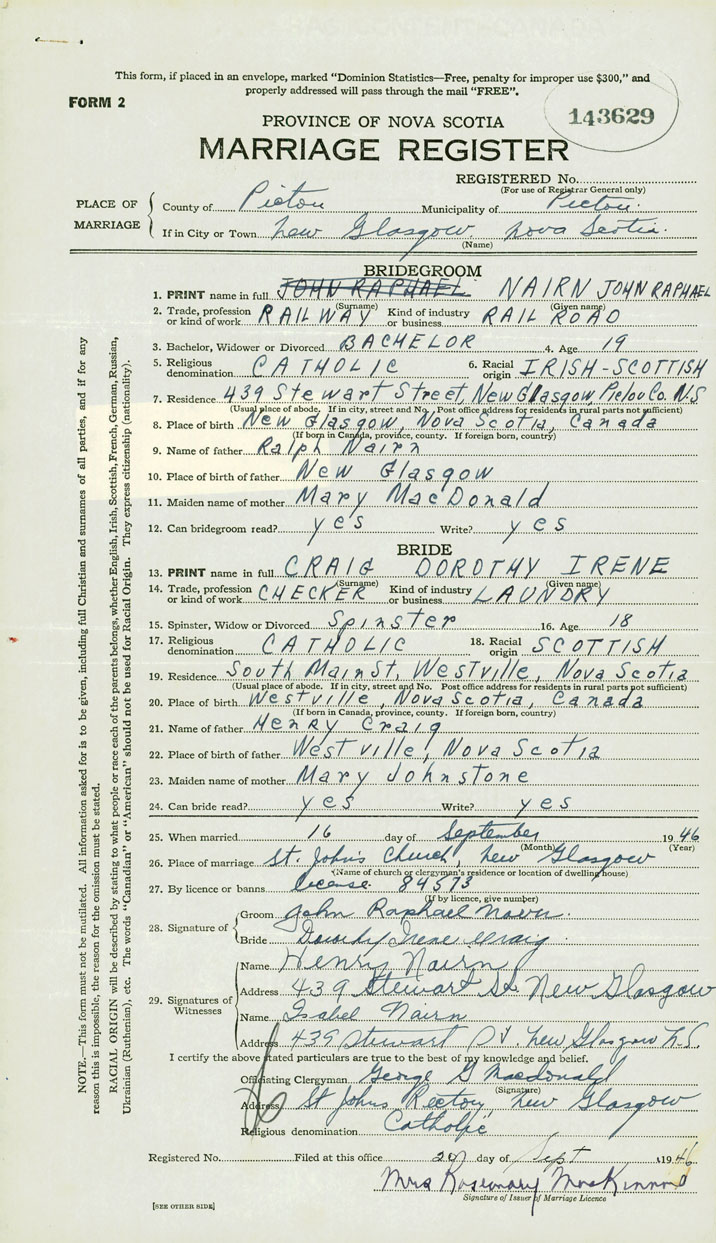 This form, if placed in an envelope, marked "Dominion Statistics—Free, penalty for improper use $300," and
properly addressed will pass through the mail "FREE".
FORM 2
143629
PROVINCE OF NOVA SCOTIA
MARRIAGE REGISTER
REGISTERED No.
(For use of Registrar General only)
PLACE OF MARRIAGE
County of Pictou Municipality of Pictou
If in City or Town New Glasgow Nova Scotia
(Name)
BRIDEGROOM
1. PRINT name in full JOHN RAPHAEL NAIRN JOHN RAPHAEL
(Surname) (Given name)
2. Trade, profession or kind of work RAILWAY Kind of industry or business RAIL ROAD
3. Bachelor, Widower or Divorced BACHELOR 4. Age 19
5. Religious denomination CATHOLIC 6. Racial origin IRISH-SCOTTISH
7. Residence 439 Stewart Street, New Glasgow, Pictou Co. N.S
(Usual place of abode. If in city, street and No. Post office address for residents in rural parts not sufficient)
8. Place of birth New Glasgow, Nova Scotia, Canada
(If born in Canada, province, county. If foreign born, country)
9. Name of father Ralph Nairn
10. Place of birth of father New Glasgow
11. Maiden name of mother Mary MacDonald
12. Can bridegroom read? yes Write? yes
BRIDE
13. PRINT name in full CRAIG DOROTHY IRENE
(Surname) (Given name)
14. Trade, profession or kind of work CHECKER Kind of industry or business LAUNDRY
15. Spinster, Widow or Divorced Spinster 16. Age 18
17. Religious denomination CATHOLIC 18. Racial origin SCOTTISH
19. Residence South Main St, Westville, Nova Scotia
(Usual place of abode. If in city, street and No. Post office address for residents in rural parts not sufficient)
20. Place of birth Westville, Nova Scotia, Canada
(If born in Canada, province, county. If foreign born, country)
21. Name of father Henry Craig
22. Place of birth of father Westville, Nova Scotia
23. Maiden name of mother Mary Johnstone
24. Can bride read? yes Write? yes
25. When married 16 day of September 1946
(Month) (Year)
26. Place of marriage St. John's Church, New Glasgow
(Name of church or clergyman's residence or location of dwelling house)
27. By licence or banns license 84573
(If by licence, give number)
28. Signature of
Groom John Raphael Nairn
Bride Dorothy Irene Craig
29. Signatures of Witnesses
Name Henry Nairn
Address 439 Stewart St New Glasgow
Name Isabel Nairn
Address 439 Stewart St. New Glasgow N.S.
I certify the above stated particulars are true to the best of my knowledge and belief.
Officiating Clergyman George G Macdonald
(Signature)
Address St Johns Rectory, New Glasgow
Religious denomination Catholic
Registered No. Filed at this office day of Sept 1946
Mrs Rosemary MacKinnon
Signature of Issuer of Marriage Licence
[SEE OTHER SIDE]
NOTE.—This form must not be mutilated. All information asked for is to be given, including full Christian and surnames of all parties, and if for any
reason this is impossible, the reason for the omission must be stated.
RACIAL ORIGIN will be described by stating to what people or race each of the parents belongs, whether English, Irish, Scottish, French, German, Russian,
Ukrainian (Ruthenian), etc. The words "Canadian" or "American" should not be used for Racial Origin. They express citizenship (nationality).